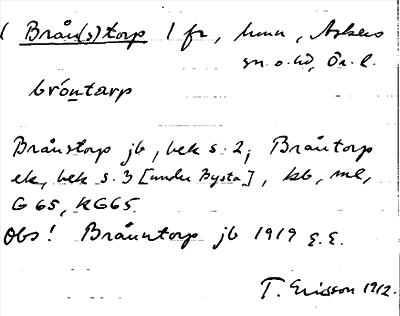 ( Brån(s)torp 1 fr, hmn, Askers
sn. o. hd, Ör. l.
bróntarp
Brånstorp jb, bek s. 2; Bråntorp
ek, bek s. 3 [under Bysta], kb, ml,
G 65, KG65.
Obs! Bråuntorp jb 1919 E.E.
T. Ericsson 1912.